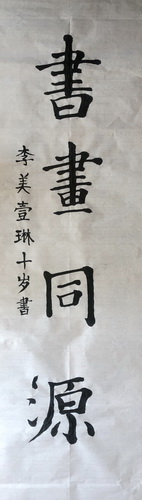 書畫同源
李美壹琳十岁書